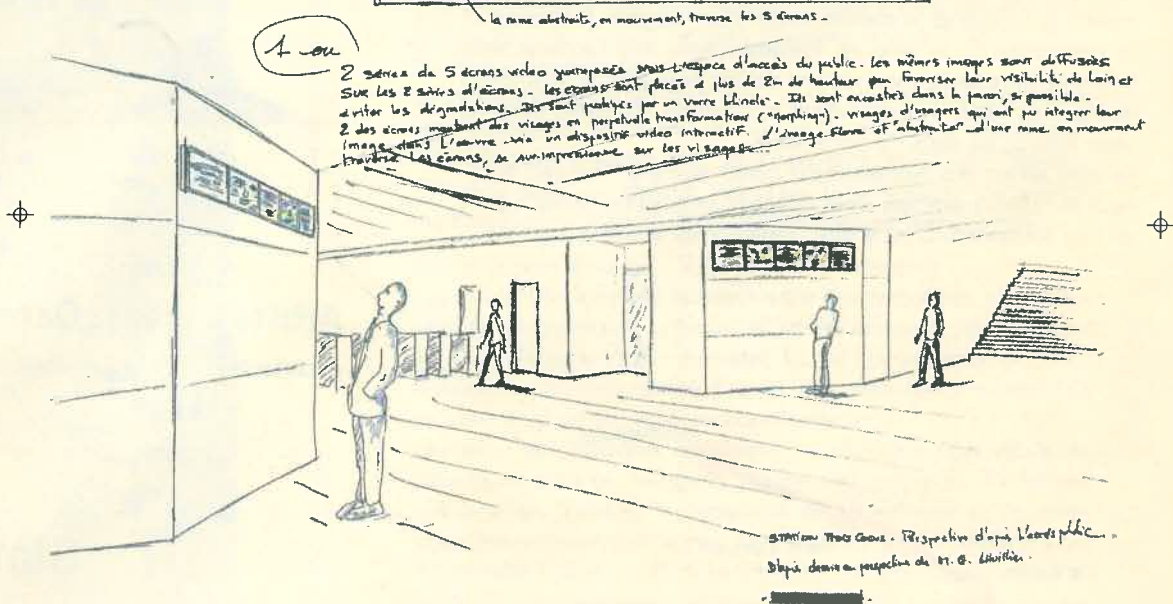 la rame abstraite, en mouvement, traverse les 5 écrans -
1 ou
2 séries de 5 écrans video juxtaposés dans l'espace d'accès du public. Les mêmes images sont diffusées
sur les 2 séries d'écrans - les écrans sont placés à plus de 2m de hauteur pour favoriser leur visibilité de loin et
éviter les dégradations. Ils sont protégés par un verre blindé - Ils sont encastrés dans la paroi, si possible -
2 des écrans montrent des visages en perpétuelle transformation ("morphing") - visages d'usagers qui ont pu intégrer leur
image dans l'œuvre via un dispositif video interactif. L'image floue et "abstraite" d'une rame en mouvement
traverse les écrans, se surimpressionne sur les visages...
STATION TROIS COCUS - Perspective d'après l'accès public -
D'après dessin en perspective de M. G.